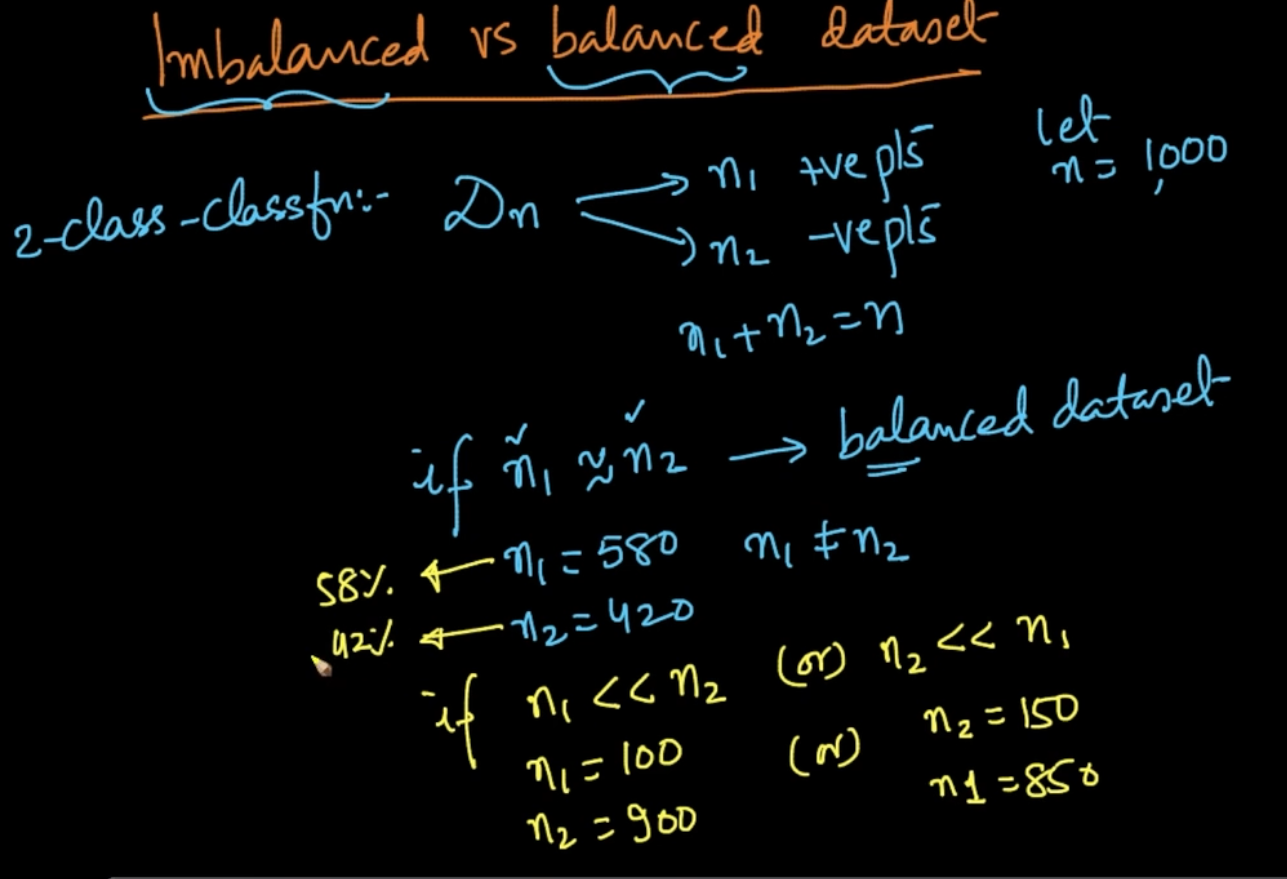 Imbalanced vs balanced dataset
let
n = 1,000
2-class-classfn:- Dn → n1 +ve pts
→ n2 -ve pts
n1 + n2 = n
if n1 ≈ n2 → balanced dataset
58% ← n1 = 580 n1 ≠ n2
42% ← n2 = 420
if n1 << n2 (or) n2 << n1
n1 = 100 (or) n2 = 150
n2 = 900 n1 = 850